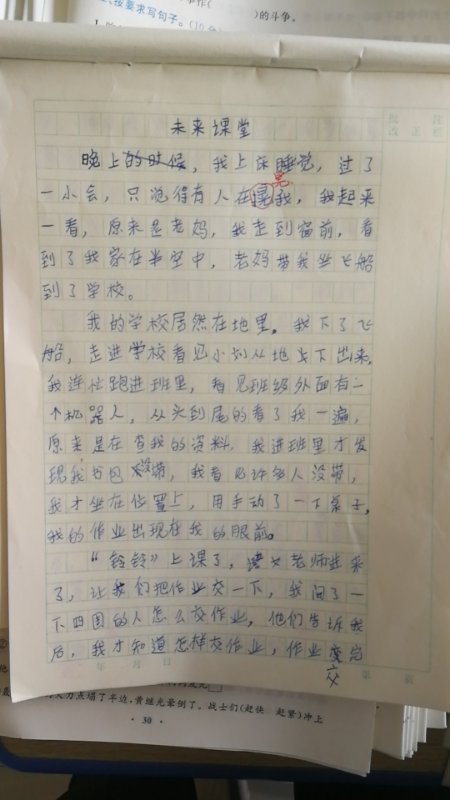 、按要求写句子。(10分
)的斗争。
批 注
改 正 栏
未来课堂
晚上的时候，我上床睡觉，过了
晃
一小会，只觉得有人在晃我，我起来
一看，原来是老妈，我走到窗前，看
到了我家在半空中，老妈带我坐飞船
到了学校。
我的学校居然在地里。我下了飞
船，走进学校看见小刘从地上下出来，
我连忙跑进班里，看见班级外面有一
个机器人，从头到尾的看了我一遍，
原来是在查我的资料，我进班里才发
现我书包没带，我看见许多人没带，
我才坐在位置上，用手动了一下桌子，
我的作业出现在我的眼前。
“铃铃”上课了，语文老师进来
了，让我们把作业交一下，我问了一
下四周的人怎么交作业，他们告诉我
后，我才知道怎样交作业，作业交完
年 月 日
第 页
人力点塌了半边，黄继光晕倒了。战士们(赶快 赶紧)冲上
· 30 ·